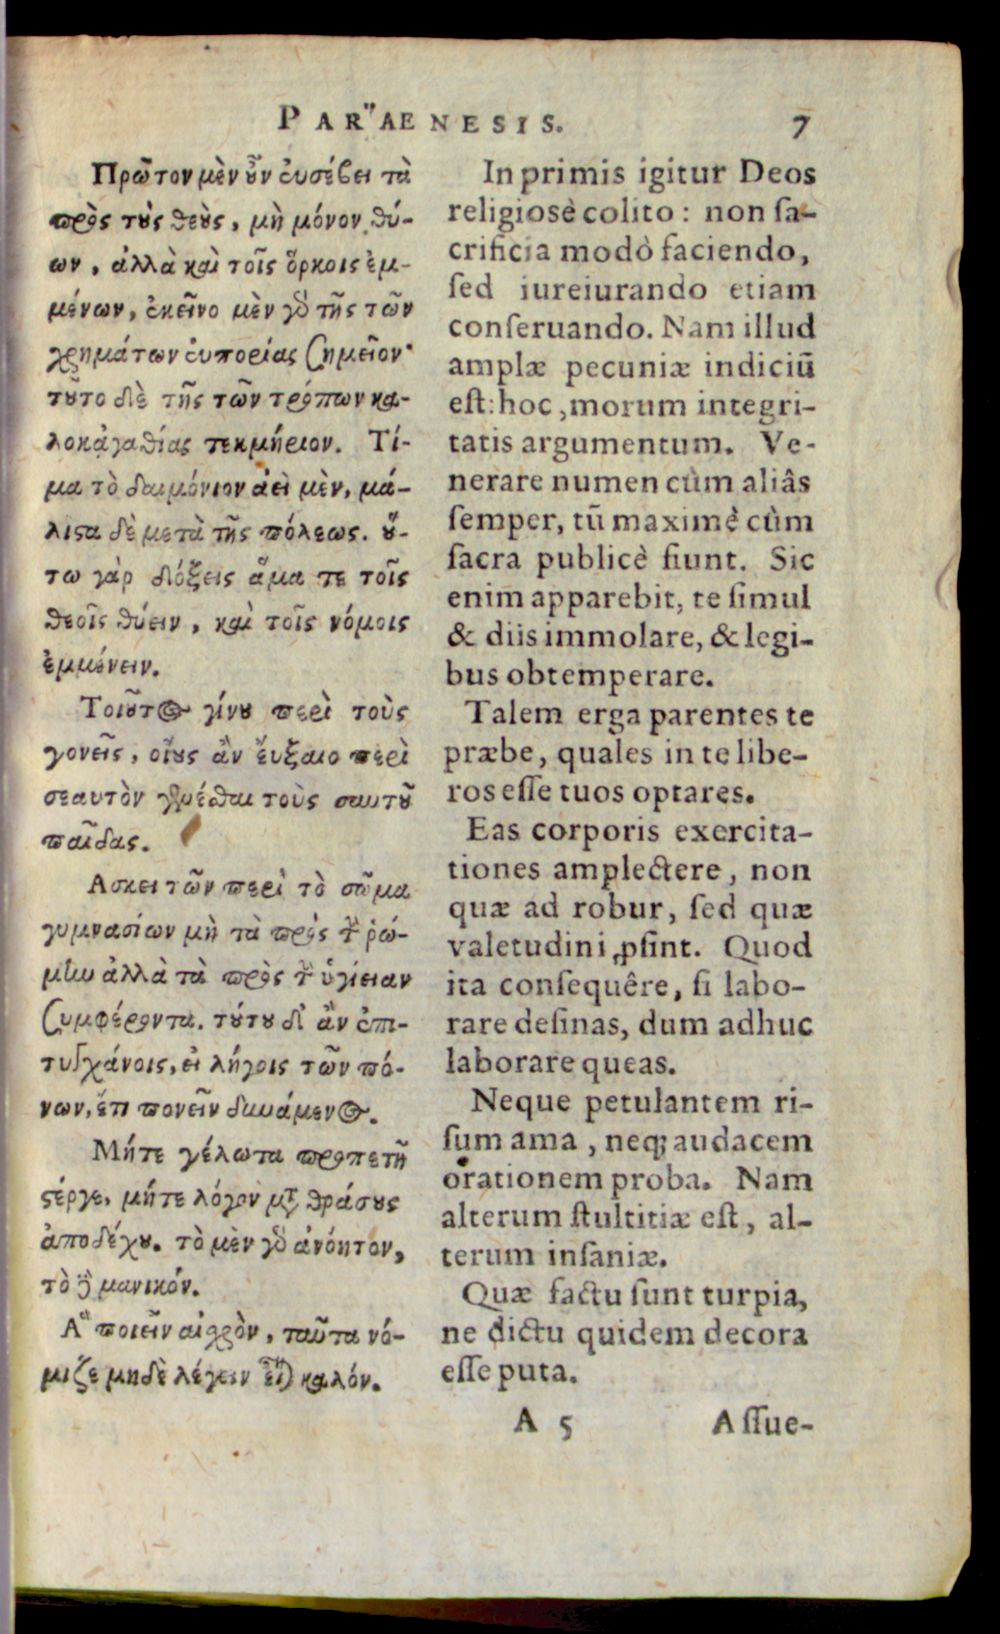 PARAENESIS. 7
Πρῶτον μὲν οὖν εὐσέβει τὰ
πρὸς τοὺς θεοὺς, μὴ μόνον θύ-
ων, ἀλλὰ καὶ τοῖς ὅρκοις ἐμ-
μένων, ἐκεῖνο μὲν γὸ τῆς τῶν
χρημάτων εὐπορίας σημεῖον·
τοῦτο δὲ τῆς τῶν τρόπων κα-
λοκἀγαθίας τεκμήριον. Τί-
μα τὸ δαιμόνιον ἀεὶ μὲν, μά-
λιστα δὲ μετὰ τῆς πόλεως. οὕ-
τω γὰρ δόξεις ἅμα τε τοῖς
θεοῖς θύειν, καὶ τοῖς νόμοις
ἐμμένειν.
Τοιοῦτος γίνου περὶ τοὺς
γονεῖς, οἵους ἂν εὔξαιο περὶ
σεαυτὸν γενέσθαι τοὺς σαυτοῦ
παῖδας.
Ασκει τῶν περὶ τὸ σῶμα
γυμνασίων μὴ τὰ πρὸς τὴν ῥώ-
μην ἀλλὰ τὰ πρὸς τὴν ὑγίειαν
συμφέροντα. τούτου δ' ἂν ἐπι-
τυγχάνοις, εἰ λήγοις τῶν πό-
νων, ἔτι πονεῖν δυνάμενος.
Μήτε γέλωτα προπετῆ
στέργε, μήτε λόγον μετὰ θράσους
ἀποδέχου. τὸ μὲν γὸ ἀνόητον,
τὸ δὲ μανικόν.
Ἃ ποιεῖν αἰσχρὸν, ταῦτα νό-
μιζε μηδὲ λέγειν εἶναι καλόν.
In primis igitur Deos
religiosè colito: non sa-
crificia modò faciendo,
sed iureiurando etiam
conseruando. Nam illud
amplæ pecuniæ indiciū
est: hoc, morum integri-
tatis argumentum. Ve-
nerare numen cùm aliâs
semper, tū maximè cùm
sacra publicè fiunt. Sic
enim apparebit, te simul
& diis immolare, & legi-
bus obtemperare.
Talem erga parentes te
præbe, quales in te libe-
ros esse tuos optares.
Eas corporis exercita-
tiones amplectere, non
quæ ad robur, sed quæ
valetudini ꝓsint. Quod
ita consequêre, si labo-
rare desinas, dum adhuc
laborare queas.
Neque petulantem ri-
sum ama, neq; audacem
orationem proba. Nam
alterum stultitiæ est, al-
terum insaniæ.
Quæ factu sunt turpia,
ne dictu quidem decora
esse puta.
A 5 Assue-